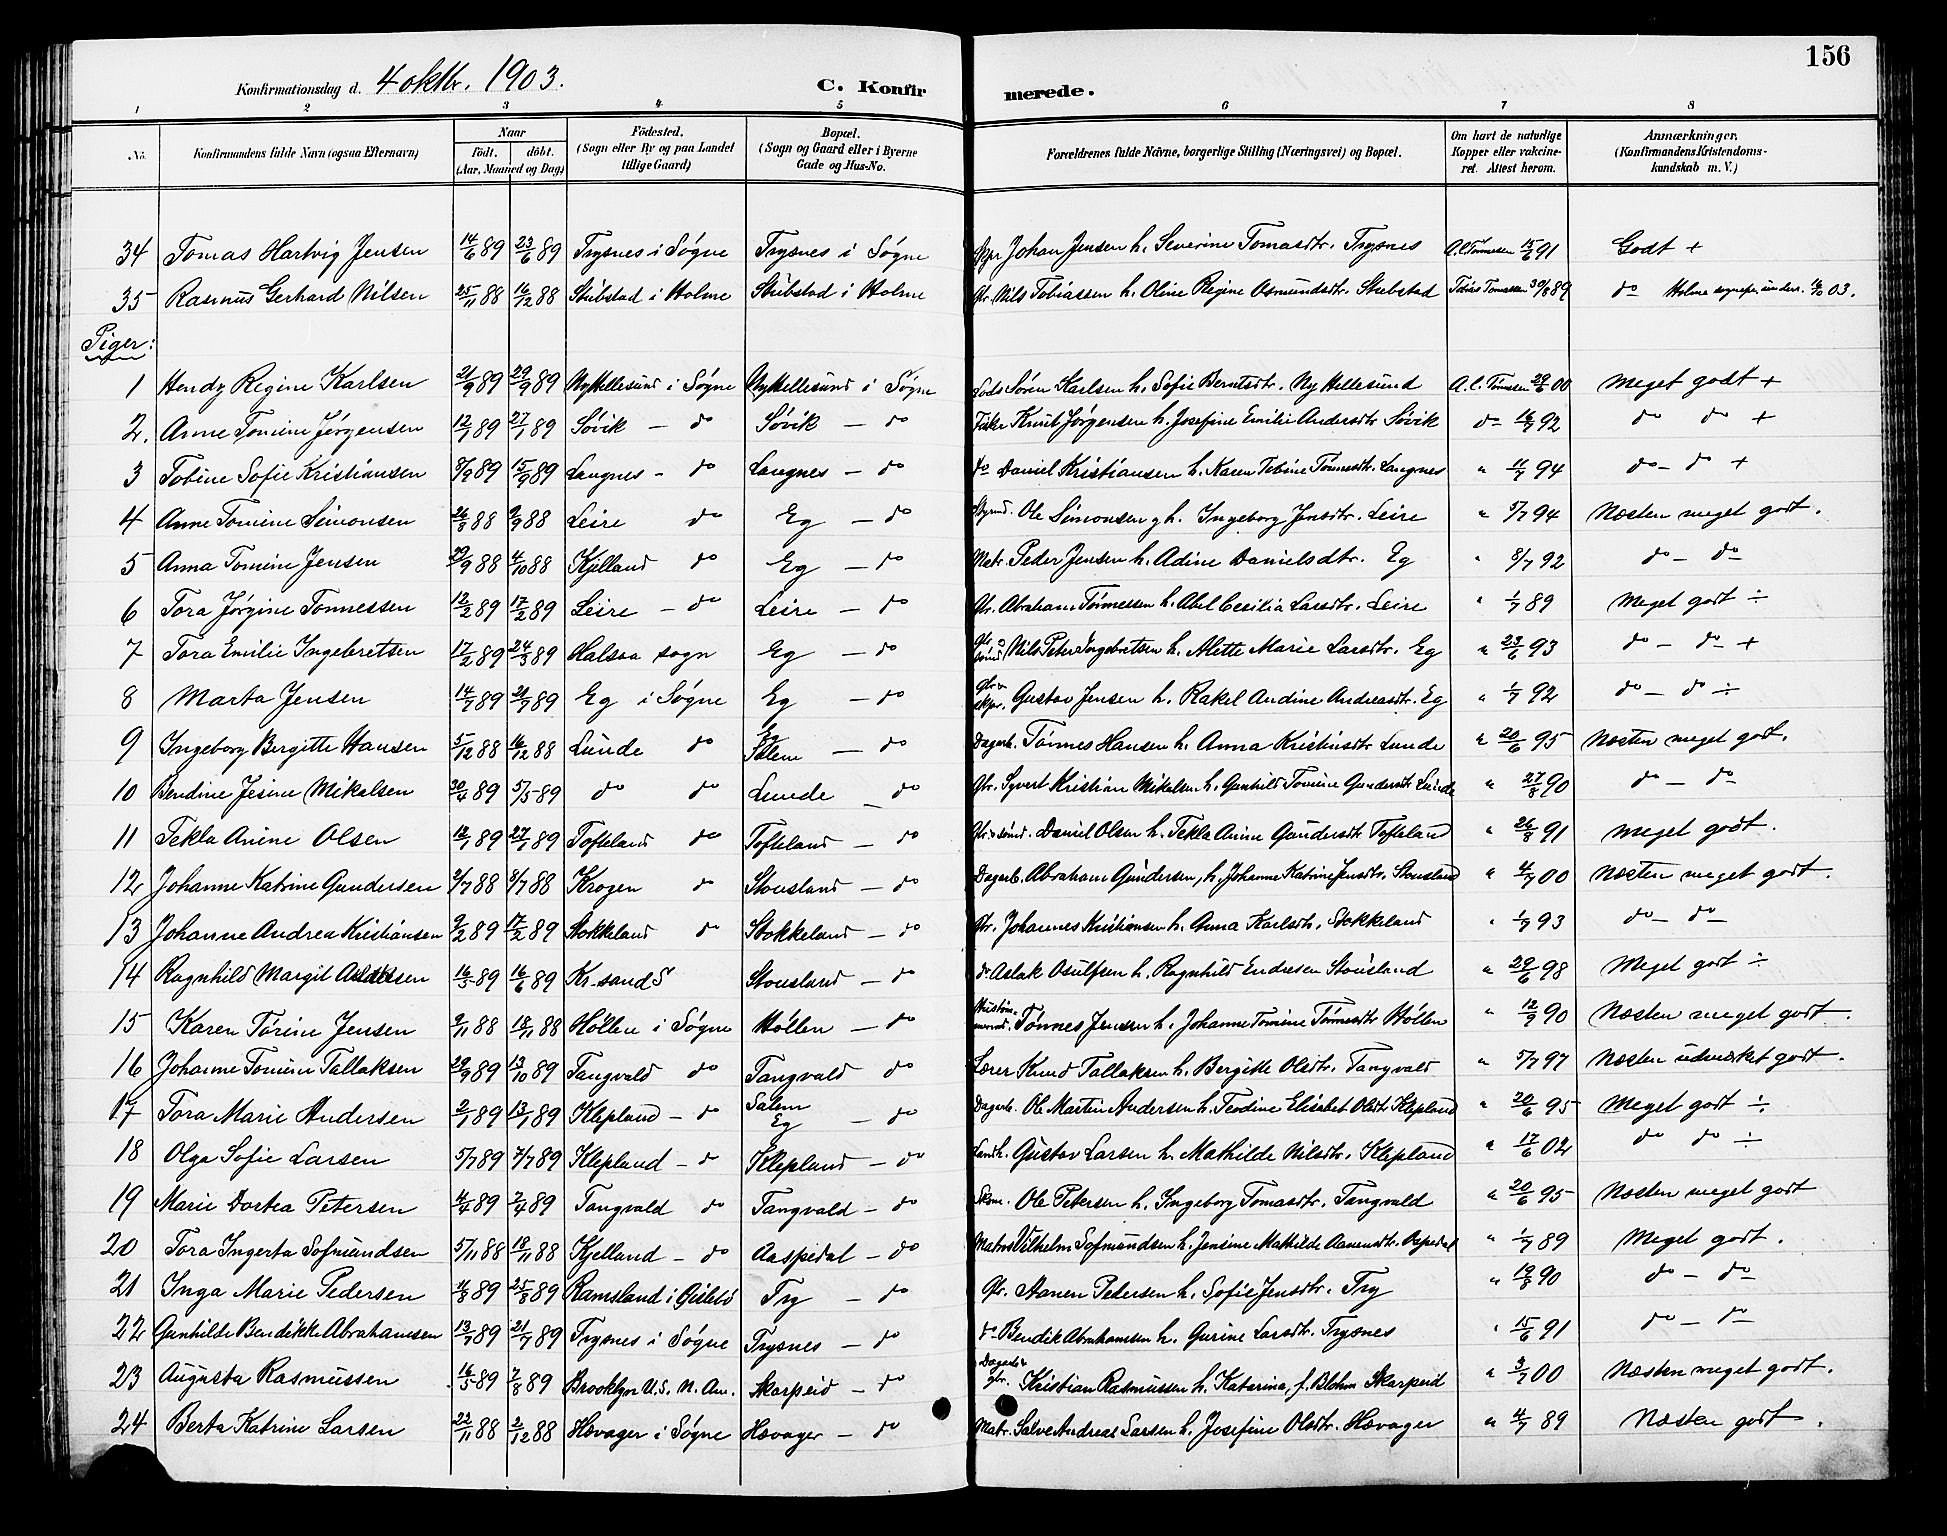 156
Konfirmationsdag d. 4 oktbr. 1903. C. Konfir merede.
1 2 3 4 5 6 7 8
No. Konfirmandens fulde Navn (ogsaa Efternavn) Naar Födt. döbt. (Aar, Maaned og Dag) Födested. (Sogn eller By og paa Landet tillige Gaard) Bopæl. (Sogn og Gaard eller i Byerne Gade og Hus-No. Forældrenes fulde Navne, borgerlige Stilling (Næringsvei) og Bopæl. Om havt de naturlige Kopper eller vakcineret. Attest herom. Anmærkninger. (Konfirmandens Kristendomskundskab m. V.)
34 Tomas Hartvig Jensen 14/6 89 23/6 89 Trysnes i Søgne Trysnes i Søgne Johan Jensen h. Severine Tomasdtr. Trysnes A.C. Tønnessen 15/6 91 Godt +
35 Rasmus Gerhard Nilsen 25/11 88 16/12 88 Stubstad i Holme Stubstad i Holme Gbr. Nils Tobiassen h. Oline Regine Osmundsdtr. Stubstad Tobias Tomassen 30/8 89 do Holme sognepr. underr. 16/10 03.
Piger:
1 Hendy Regine Karlsen 21/9 89 29/9 89 Ny Hellesund i Søgne Ny Hellesund i Søgne Lods Søren Karlsen h. Sofie Berntsdtr. Ny Hellesund A.C. Tønnesen 29/6 00 Meget godt +
2. Anne Tomine Jørgensen 12/1 89 27/1 89 Søvik - do Søvik - do Fisker Knut Jørgensen h. Josefine Emilie Andersdtr Søvik do 16/7 92 do do +
3 Tobine Sofie Kristiansen 8/9 89 15/9 89 Langnes - do Langnes - do do Daniel Kristiansen h. Karen Tobine Tønnesdtr. Langnes " 11/7 94 do - do +
4 Anne Tomine Simonsen 26/8 88 9/9 88 Leire do Eg - do Ole Simonsen g h. Ingeborg Jensdtr. Leire " 5/7 94 Næsten meget godt.
5 Anna Tomine Jensen 29/9 88 4/10 88 Kjelland do Eg - do Matr. Peder Jensen h. Adine Danielsdtr. Eg " 8/7 92 do - do
6 Tora Jørgine Tønnessen 12/2 89 17/2 89 Leire - do Leire - do Gbr. Abraham Tønnessen h. Abel Cecilia Larsdtr. Leire " 1/7 89 Meget godt ÷
7 Tora Emilie Ingebretsen 17/2 89 24/3 89 Halsaa sogn Eg - do Nils Peter Ingebretsen h. Alette Marie Larsdtr. Eg " 23/6 93 do - do - +
8 Marta Jensen 14/7 89 21/7 89 Eg i Søgne Eg - do Gbr. skpr. Gustav Jensen h. Rakel Andine Andreasdtr. Eg " 1/7 92 do - do ÷
9 Ingeborg Bergitte Hansen 5/12 88 16/12 88 Lunde do Eg Salem - do Dagarb. Tønnes Hansen h. Anna Kristinsdtr Lunde " 20/6 95 Næsten meget godt.
10 Bendine Jesine Mikalsen 20/4 89 5/5 89 do do Lunde - do Gbr. Syvert Kristian Mikalsen h. Gunhild Tomine Gundersdtr Lunde " 27/8 90 do - do
11 Tekla Anine Olsen 12/1 89 27/1 89 Tofteland do Tofteland - do Daniel Olsen h. Tekla Anine Gundersdtr Tofteland " 26/8 91 Meget godt.
12 Johanne Katrine Gundersen 2/7 88 8/7 88 Krogen do Stousland - do Dagarb. Abraham Gundersen, h. Johanne Katrine Jensdtr. Stousland " 4/7 00 Næsten meget godt.
13 Johanne Andrea Kristiansen 9/2 89 17/2 89 Stokkeland do Stokkeland - do Gbr. Johannes Kristiansen h. Anna Karlsdtr. Stokkeland " 1/7 93 do - do -
14 Ragnhild Margit 16/5 89 16/6 89 Kr.sand S Stousland - do do Aslak Osulfsen h. Ragnhild Endresen Stousland " 29/6 98 Meget godt ÷
15 Karen Torine Jensen 9/11 88 18/11 88 Høllen i Søgne Høllen - do Tønnes Jensen h. Johanne Tomine Tønnesdtr Høllen " 12/9 90 Næsten meget godt.
16 Johanne Tomine Tallaksen 29/9 89 13/10 89 Tangvald do Tangvald do Lærer Knud Tallaksen h. Bergitte Olsdtr. Tangvald " 5/7 97 Næsten udmærket godt.
17 Tora Marie Andersen 2/1 89 13/1 89 Klepland - do Salem Eg - do Dagarb. Ole Martin Andersen h. Teodine Elisabet Olsdtr. Klepland " 20/6 95 Meget godt ÷
18 Olga Sofie Larsen 5/7 89 7/7 89 Klepland - d Klepland - do Landh. Gustav Larsen h. Mathilde Nilsdtr. Klepland " 17/6 02 do do ÷
19 Marie Dortea Petersen 4/4 89 2/4 89 Tangvald do Tangvald - do Skom. Ole Petersen h. Ingeborg Tomasdtr. Tangvald " 20/6 95 Næsten meget godt
20 Tora Ingerta Sofmundsen 5/11 88 18/11 88 Kjelland - do Aaspedal - do Matros Vilhelm Sofmundsen h. Jensine Mathilde Aanensdtr. Aspedal " 1/7 89 Meget godt.
21 Inga Marie Pedersen 11/8 89 25/8 89 Ramsland i Øislebø Try - do Gbr. Aanen Pedersen h. Sofie Jensdtr. Try " 19/8 90 do - do
22 Gunhilde Bendikke Abrahamsen 13/7 89 21/7 89 Trysnes i Søgne Trysnes - do do Bendik Abrahamsen h. Gurine Larsdtr. Trysnes " 15/6 91 do - do
23 Augusta Rasmussen 16/5 89 7/8 89 Brooklyn U.S. N. Am. Skarpeid - do Dagarb. gbr. Kristian Rasmussen h. Katerina, f. Blohm Skarpeid " 3/7 00 Næsten meget godt.
24 Berta Katrine Larsen 22/11 88 2/12 88 Hævager i Søgne Hævager - do Matr. Salve Andreas Larsen h. Josefine Olsdtr. Hævager " 4/7 89 Næsten godt.